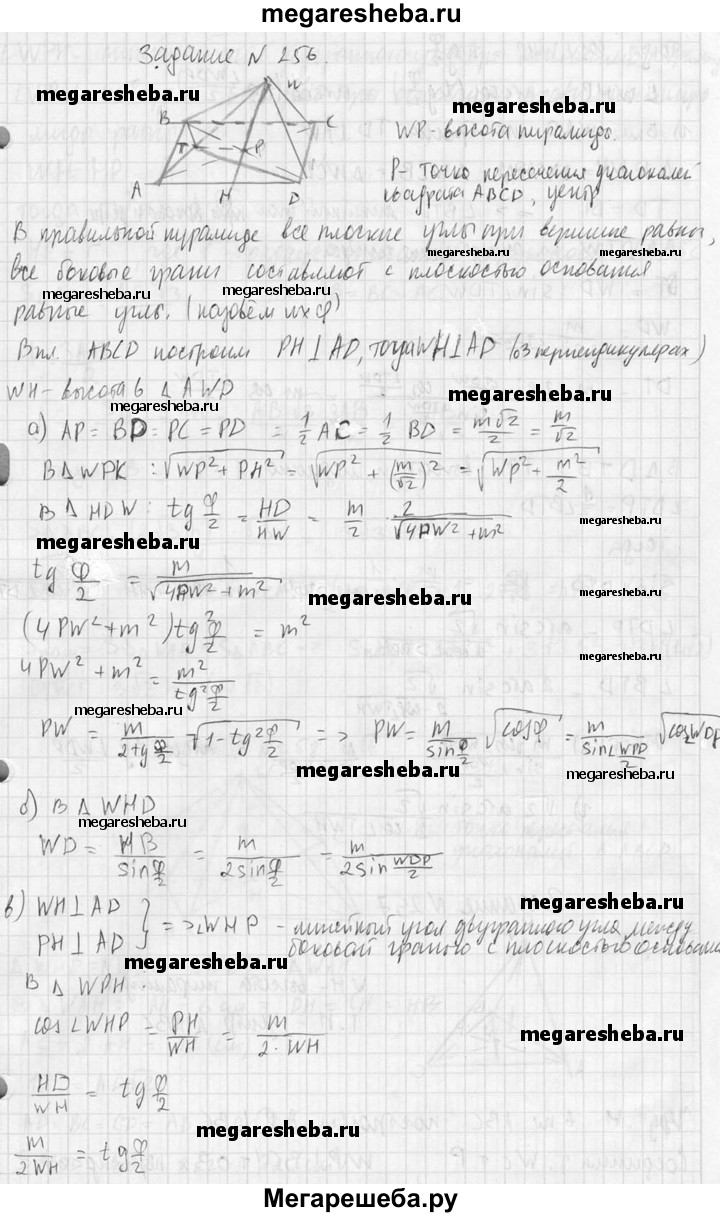 megaresheba.ru
Задание N 256.
W
megaresheba.ru
megaresheba.ru
B
C
T
P
A
H
D
WP - высота пирамиды.
P - точка пересечения диагоналей
квадрата ABCD, центр
В правильной пирамиде все плоские углы при вершине равны,
megaresheba.ru megaresheba.ru
все боковые грани составляют с плоскостью основания
megaresheba.ru megaresheba.ru
равные углы. (назовём их φ)
В пл. ABCD построим PH⊥AD, тогда WH⊥AD (о 3 перпендикулярах)
WH - высота в △ AWD
megaresheba.ru megaresheba.ru
а) AP = BD = PC = PD = 1/2 AC = 1/2 BD = m√2/2 = m/√2
В △ WPK : √(WP² + PH²) = √(WP² + (m/√2)²) = √(WP² + m²/2)
В △ HDW: tg φ/2 = HD/HW = m/2 · 2/√(4PW² + m²)
megaresheba.ru
megaresheba.ru
tg φ/2 = m/√(4PW² + m²)
megaresheba.ru
(4PW² + m²) tg² φ/2 = m²
megaresheba.ru
4PW² + m² = m²/tg² φ/2
megaresheba.ru
PW = m/(2tg φ/2) √(1 - tg² φ/2) => PW = m/(sin φ/2) √cosφ = m/(sin ∠WPD/2) √cosWDP
megaresheba.ru
megaresheba.ru
б) В △ WHD
megaresheba.ru
WD = HB/(sin φ/2) = m/(2sin φ/2) = m/(2sin WDP/2)
megaresheba.ru
в) WH⊥AD
PH⊥AD } => ∠WHP - линейный угол двугранного угла между
боковой гранью с плоскостью основания
megaresheba.ru
В △ WPH.
cos ∠WHP = PH/WH = m/(2·WH)
megaresheba.ru
HD/WH = tg φ/2
megaresheba.ru
m/2WH = tg φ/2
megaresheba.ru
Мегарешеба.ру